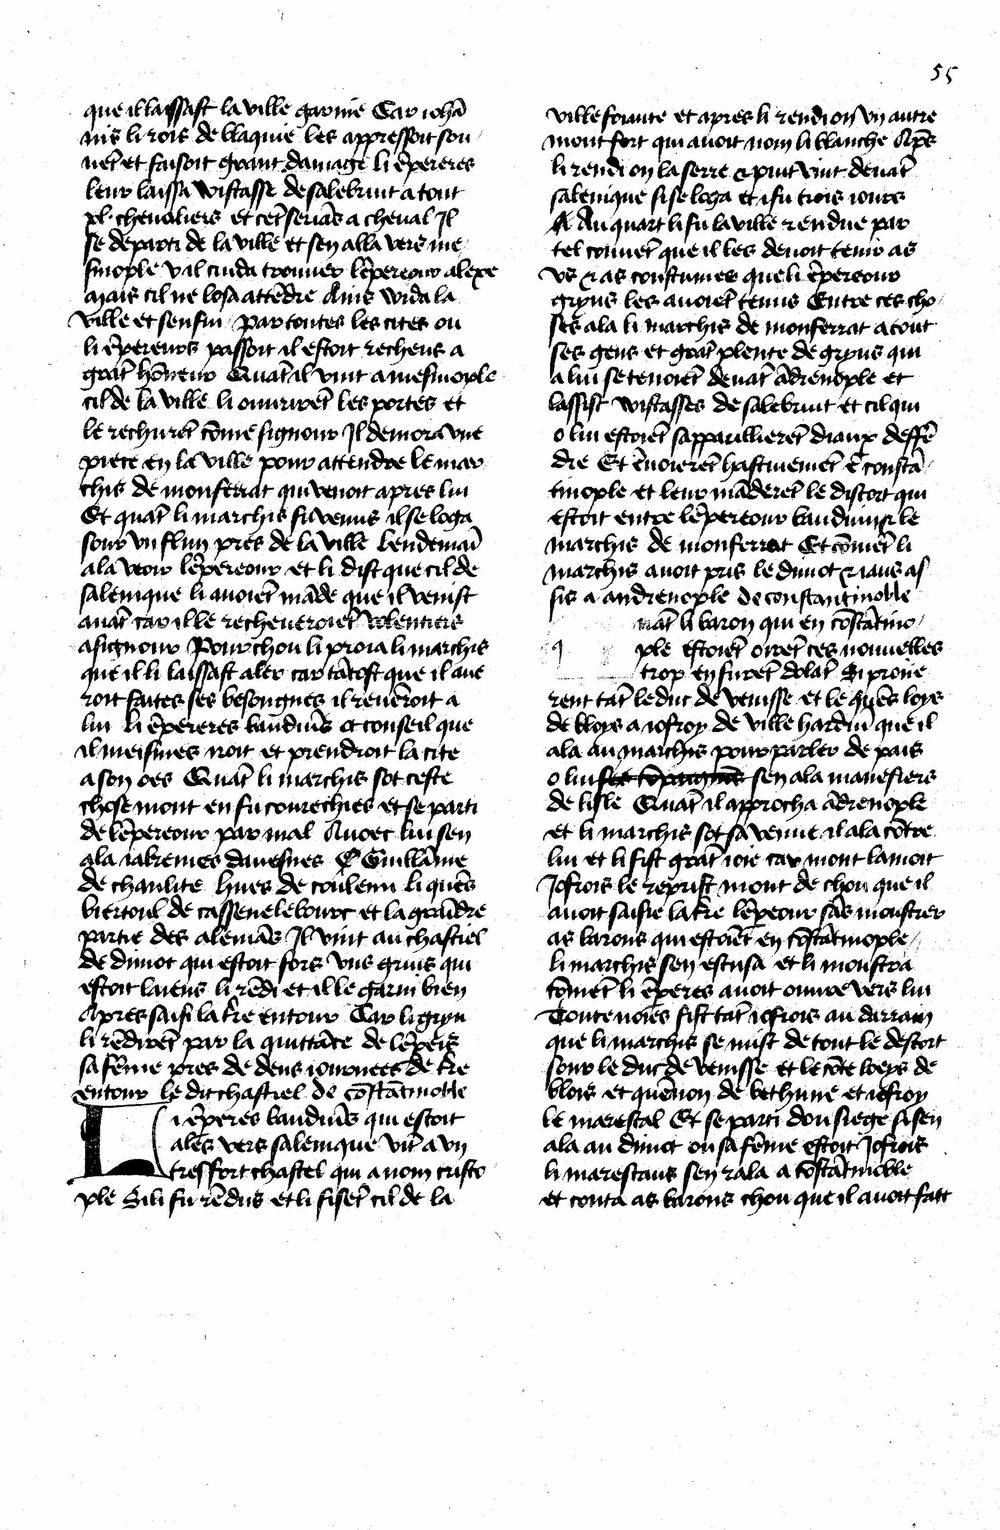 55
que il laissast la ville garnie Car iohā
nis li rois de blaquie les appressoit sou
uēt et faisoit grant damage li ēpereres
leur laissa wistasse de salebruit a tout
xl. cheualiers et cēt seriās a cheual Il
se departi de la ville et sen alla vers me
sinople v il cuida trouuer lēpereour alexe
Mais cil ne losa attēdre Ains wida la
ville et senfui Par toutes les cites ou
li ēpereurs passoit il estoit recheus a
grāt hōneur Quāt il vint a mesinople
cil de la ville li ouurirēt les portes et
le rechurēt cōme signour Il demora vne
piece en la ville pour attendre le mar
chis de monferrat qui venoit apres lui
Et quāt li marchis fu venus il se loga
sour vn flun pres de la ville Lendemaī
ala veoir lēpereour et li dist que cil de
salenique li auoiēt māde que il venist
auāt car il le recheueroiēt volentiers
a signour Pour chou li proia li marchis
que il li laissast aler car tātost que il aue
roit faites ses besongnes il reuēroit a
lui Li ēpereres bauduīs ot conseil que
il meismes iroit et prendroit la cite
a son oes Quāt li marchis sot ceste
chose mout en fu courechies et se parti
de lēpereour par mal Auoec lui sen
ala iakemes dauesnes Et Guillāme
de chanlite hues de coulemi li quēs
biertoul de cassenelebourc et la grādre
partie des alemās Il vint au chastiel
de dimot qui estoit fors vns grius qui
estoit laiens li rēdi et il le garni bien
Apres saisi la t̄re entour Car li gryu
li rēdirēt par la quittāce de lēperis
sa fēme pres de deus iournees de t̄re
entour le dit chastiel de cōstātinoble
Li ēperes bauduīs qui estoit
ales vers salenique vīt a vn
tres fort chastel qui a nom cristo
ple Si li fu rēdus et li fisēt cil de la
ville foiaute et apres li rendi on vn autre
mout fort qui auoit nom li blanche Apēs
li rendi on la serre & puit vint deuāt
salenique si se loga et i fu trois iours
A Au quart li fu la ville rendue par
tel couuēt que il les deuoit tenir as
vs & as coustumes que li ēpereour
gryus les auoiēt tenus Entre ces cho
ses ala li marchis de monferrat a tout
ses gens et grāt plente de gryus qui
a lui se tenoiēt deuāt ādrenople et
lassist wistasses de salebruit et cil qui
o lui estoiēt sapparillierēt diaux deffē
dre Et ēuoierēt hastiuemēt ē constā
tinople et leur māderēt le discort qui
estoit entre lēpereour bauduin & le
marchis de monferrat Et cōmēt li
marchis auoit pris le dimot & iaus as
sis a andrenople de constantinoble
uāt li baron qui en cōstātino
ple estoiēt oirēt ces nouuelles
trop en furēt dolāt Si proiie
rent tāt le duc de venisse et le quēs loys
de bloys a iofroy de ville harduī que il
ala au marchis pour parler de pais
o lui sen ala manesiers
de lisle Quāt il approcha ādrenople
et li marchis sot sa venue il ala cōtre
lui et li fist grāt ioie car mout lamoit
Iofrois le reprist mout de chou que il
auoit saisie la t̄re lēpeour sās moustrer
as barons qui estoiēt en cōstātinople
li marchis sen escusa et li moustra
cōmēt li ēperes auoit ouure vers lui
Toutenoies fist tāt iofrois au darrain
que li marchis se mist de tout le descort
sour le duc de venisse et le cōte loeys de
blois et quēnon de bethune et iofroy
le marescal Et se parti dou siege si sen
ala au dimot ou sa fēme estoit Iofrois
li marescaus sen rala a cōstātinoble
et conta as barons chou que il auoit fait